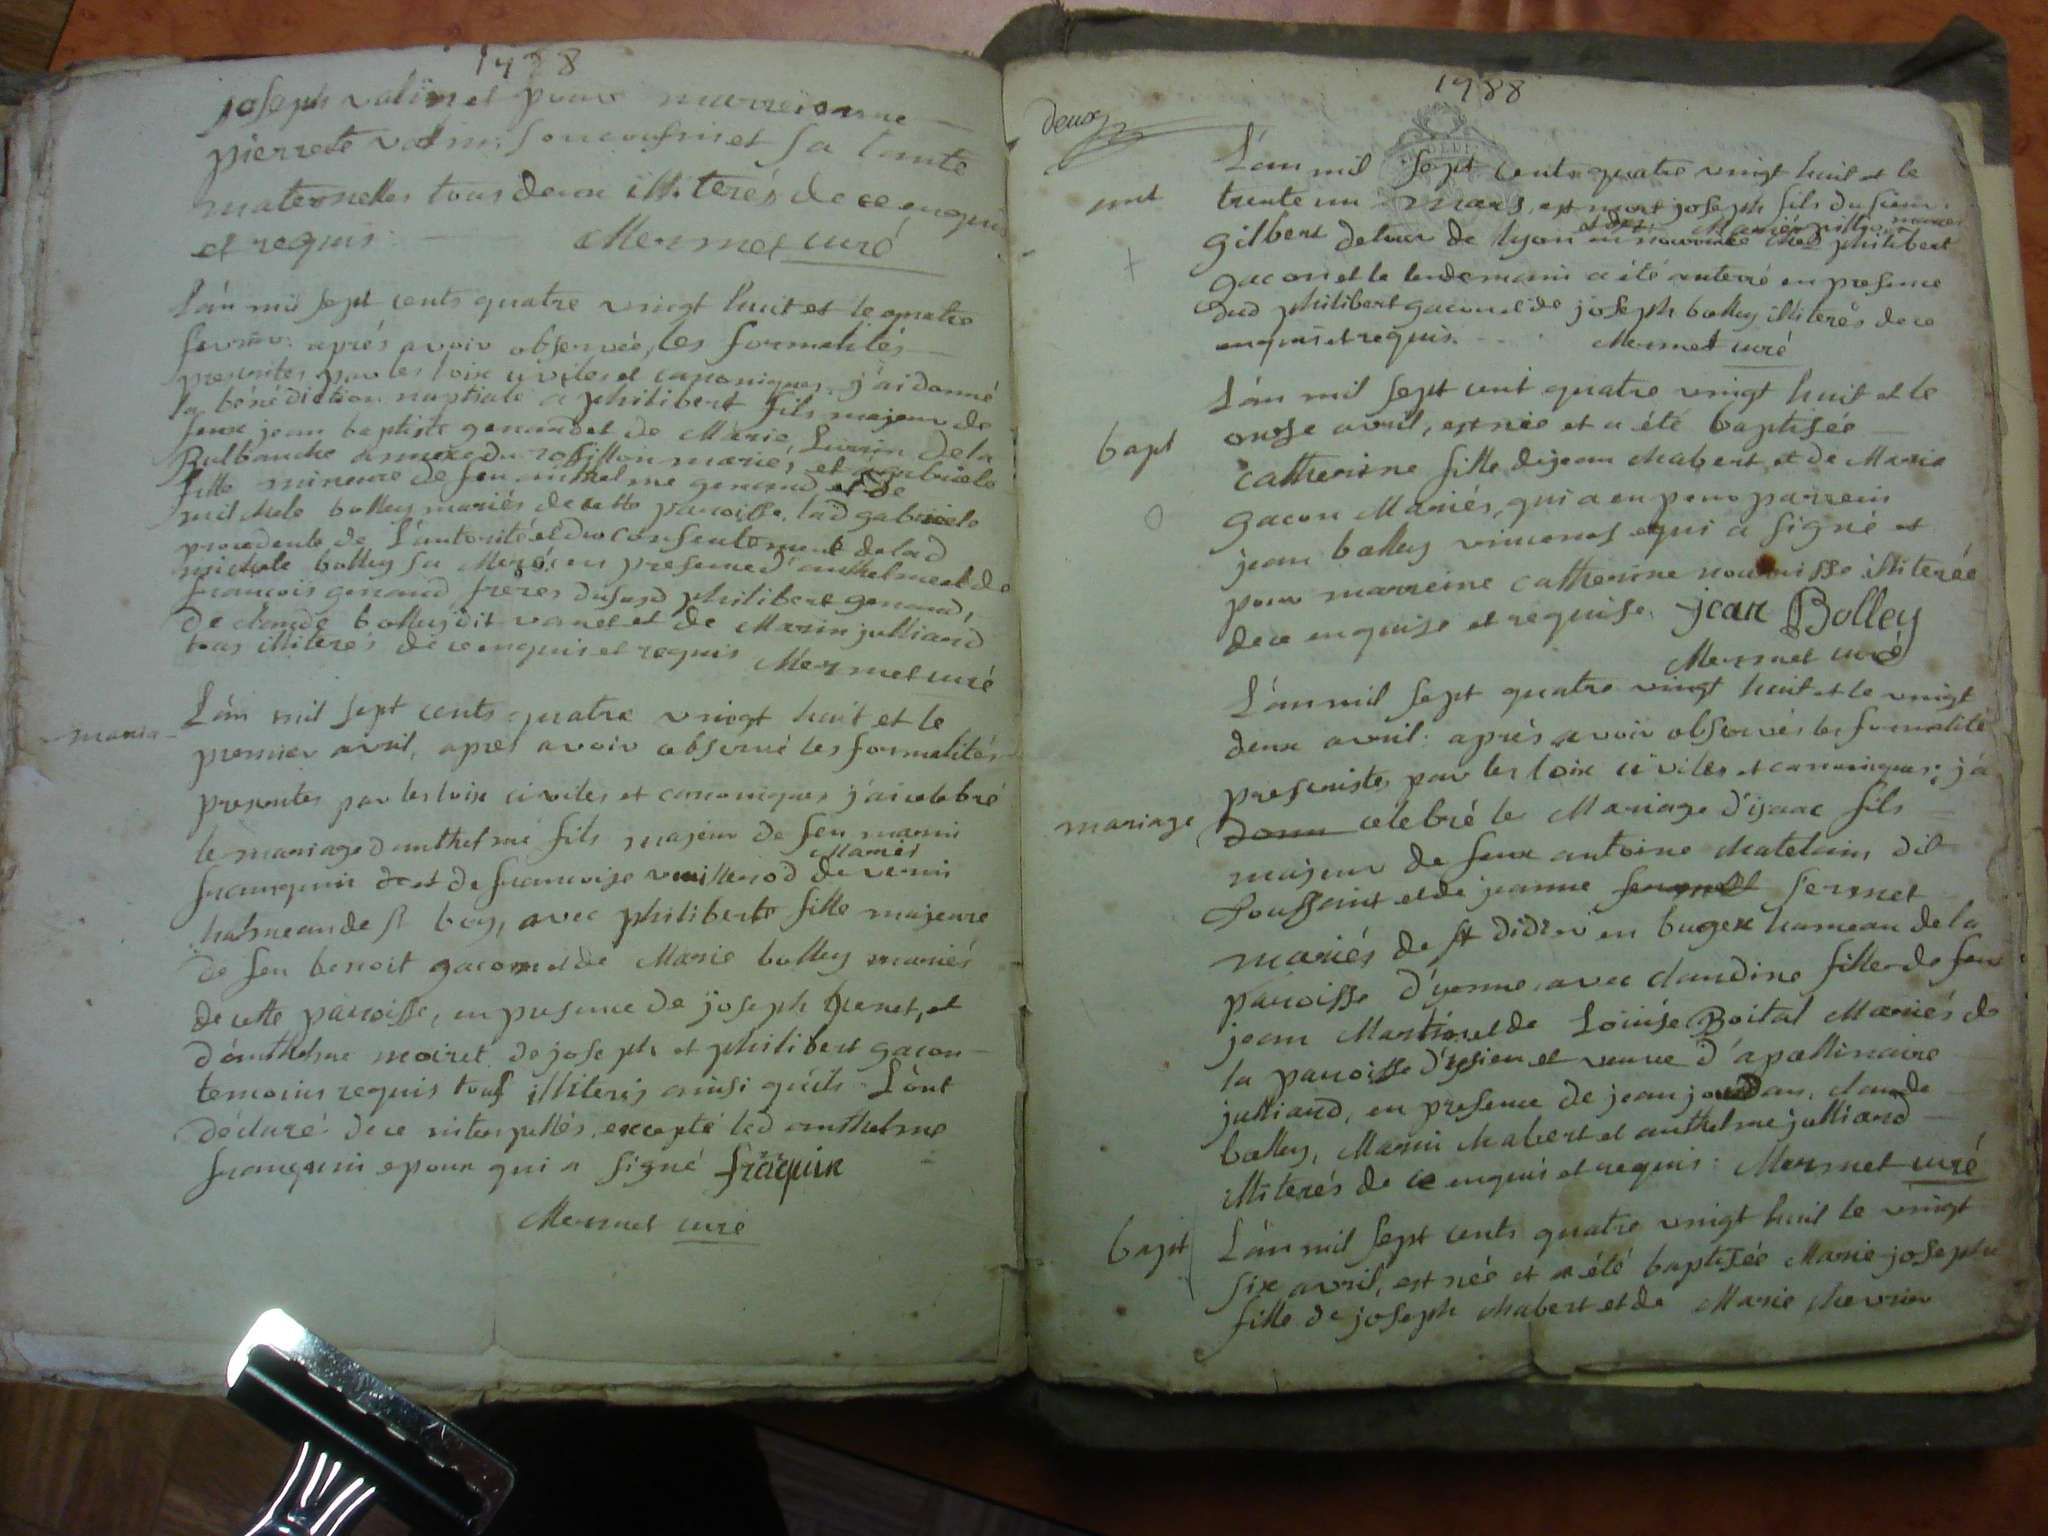 1788
joseph vatin et pour marreionne
pierrete vatin, son cousin et sa tante
maternelles tous deux illiterés de ce enquis
et requis. Mermet curé
L'an mil sept cents quatre vingt huit et le quatre
fevrier. après avoir observée, les formalités
prescrites par les loix civiles et canoniques j'ai donné
la bénédiction nuptiale a philibert fils majeur de
feux jean baptiste genaud et de Marie
annexe du rossillon mariés et gabriele
fille mineure de feu anthelme genaud et de
michele bolley mariés de cette paroisse. lad gabriele
procedente de l'autorité et du consentement de lad
michele bolley sa Mere; en presence d'anthelme et de
francois genaud freres dususd philibert genaud,
de claude bolley dit et de Marin julliand
tous illiterés de ce enquis et requis Mermet curé
maria
L'an mil sept cents quatre vingt huit et le
premier avril, apres avoir observé les formalités
prescrites par les loix civiles et canoniques j'ai celebré
le mariage d'anthelme fils majeur de feu marin
Mariés
franquin et de francoise vuillerod de
hameau de st boys, avec philiberte fille majeure
de feu benoit gacon et de Marie bolley mariés
de cette paroisse, en presence de joseph et
d'anthelme moiret de joseph et philibert gacon
temoins requis tous illiteris ainsi qu'ils l'ont
déclaré de ce interpellés, excepté led anthelme
franquin epoux qui a signé fraquin
Mermet curé
1788
deux
L'an mil sept cents quatre vingt huit et le
mort
trente un mars, est mort joseph fils du sieur
mariés
gilbert de lyon en nourrice chez philibert
gacon et le lendemain a été enterré en presence
dud philibert gacon et de joseph bolley illiterés de ce
enquis et requis. Mermet curé
L'an mil sept cent quatre vingt huit et le
bapt
onze avril, est née et a été baptisée
catherine fille de jean chabert et de Marie
gacon Mariés, qui a eu pour parrein
jean bolley qui a signé et
pour marreine catherine nouvisse illiterée
de ce enquise et requise. jean Bolley
Mermet curé
L'an mil sept quatre vingt huit et le vingt
deux avril. après avoir observés les formalité
prescristes par les loix civiles et canoniques; j'ai
mariage
donn celebré le Mariage d'isaac fils
majeur de feux antoine chatelain dit
toussaint et de jeanne sermet
mariés de st didier en bugex hameau de la
paroisse d'yenne avec claudine fille de feu
jean Martin et de Loüise Boital Mariés de
la paroisse d'ysieu et veuve d'apollinaire
julliand, en presence de jean jourdan, claude
bolley, Marin chabert et anthelme julliand
illiterés de ce enquis et requis: Mermet curé
bapt
L'an mil sept cents quatre vingt huit le vingt
six avril, est née et a été baptisée Marie josephe
fille de joseph chabert et de Marie chevrier